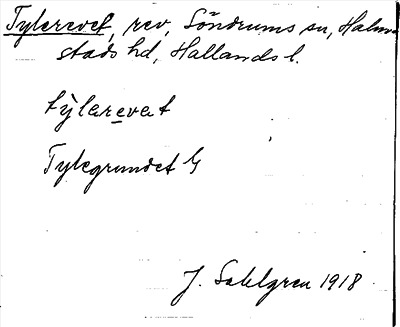 Tylerevet, rev, Söndrums sn, Halm-
stads hd, Hallands l.
tỳlarevat
Tylegrundet G
J. Sahlgren 1918